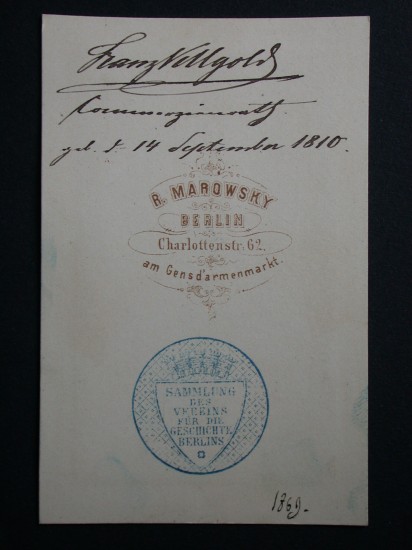 Franz Vollgold
Commerzienrath
geb. d. 14 September 1810.
R. MAROWSKY
BERLIN
Charlottenstr. 62.
am Gensd'armenmarkt.
SAMMLUNG
DES
VEREINS
FÜR DIE
GESCHICHTE
BERLINS
1869.